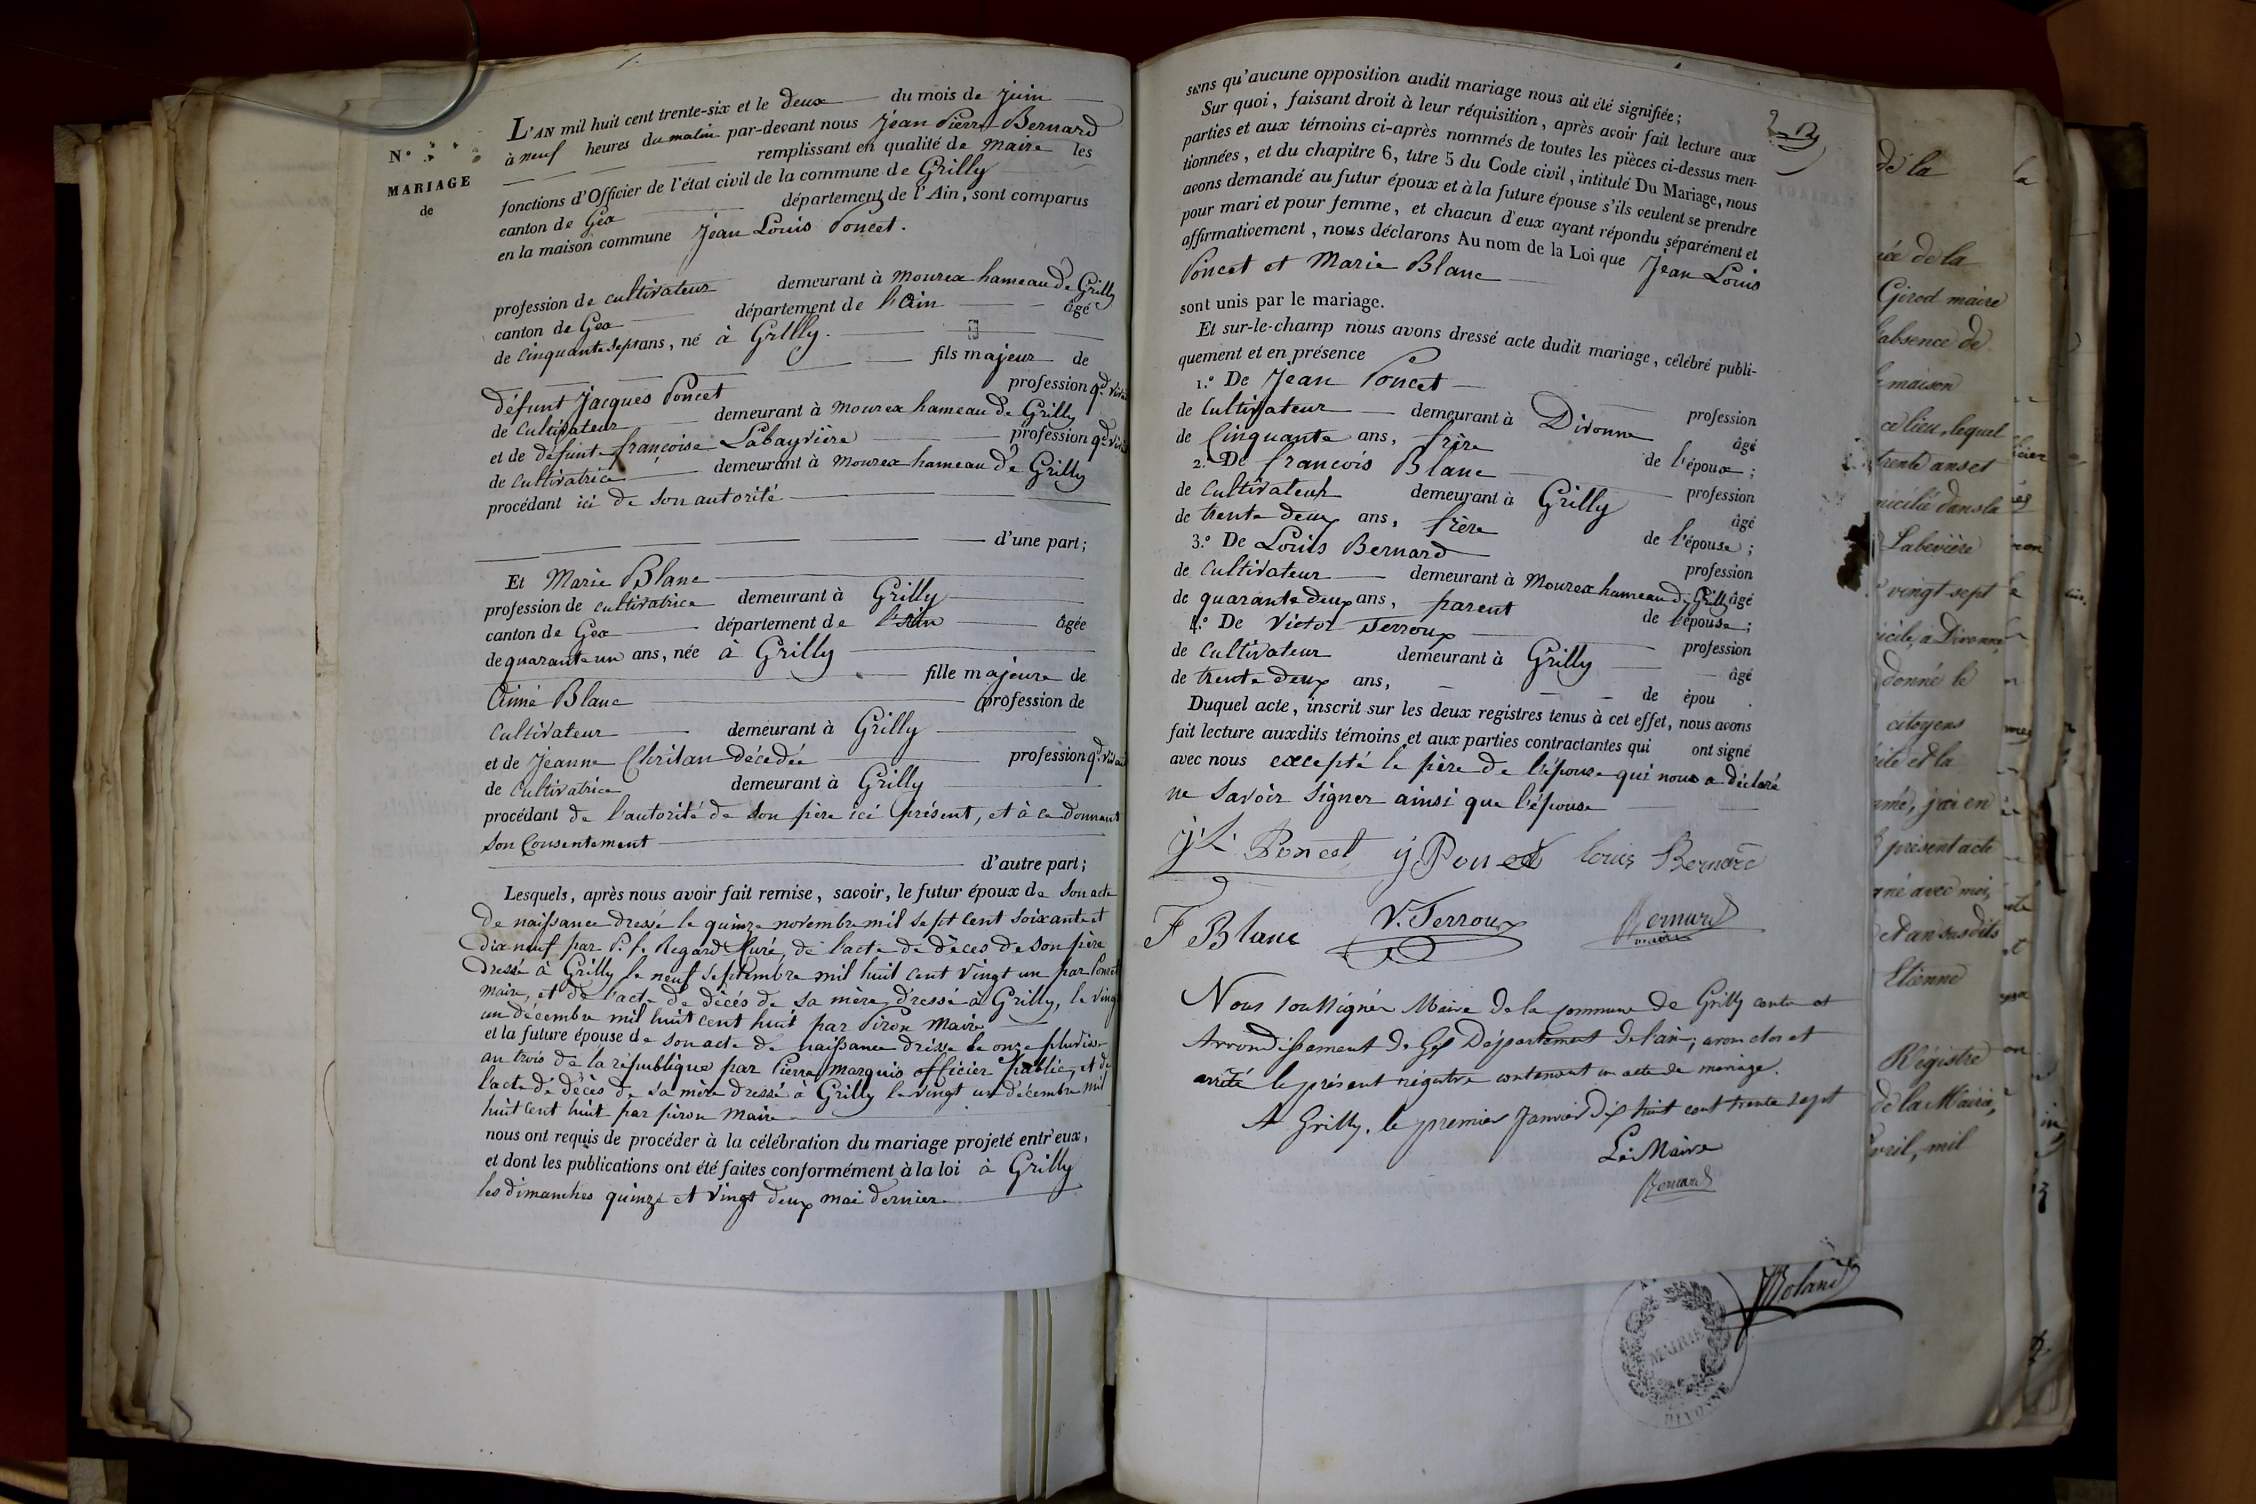 N°
MARIAGE
de
L'AN mil huit cent trente-six et le deux du mois de juin
à neuf heures du matin par-devant nous Jean Pierre Bernard
remplissant en qualité de maire les
fonctions d'Officier de l'état civil de la commune de Grilly
canton de Gex département de l'Ain, sont comparus
en la maison commune Jean Louis Poncet.
profession de cultivateur demeurant à Mourex hameau de Grilly
canton de Gex département de l'Ain âgé
de cinquante sept ans, né à Grilly.
fils majeur de
défunt Jacques Poncet profession qd vivait
de cultivateur demeurant à Mourex hameau de Grilly
et de défunte françoise Labayvière profession qd vivait
de cultivatrice demeurant à Mourex hameau de Grilly
procédant ici de son autorité
d'une part;
Et Marie Blanc
profession de cultivatrice demeurant à Grilly
canton de Gex département de l'Ain âgée
de quarante un ans, née à Grilly
fille majeure de
Aimé Blanc profession de
cultivateur demeurant à Grilly
et de Jeanne décédée profession qd vivait
de cultivatrice demeurant à Grilly
procédant de l'autorité de son père ici présent, et à ce donnant
son Consentement
d'autre part;
Lesquels, après nous avoir fait remise, savoir, le futur époux de son acte
de naissance dressé le quinze novembre mil sept cent soixante et
dix neuf par P. f. Regard Curé, de l'acte de décès de son père
dressé à Grilly le neuf septembre mil huit cent vingt un par Poncet
maire, et de l'acte de décès de sa mère dressé à Grilly, le vingt
un décembre mil huit cent huit par Piron Maire
et la future épouse de son acte de naissance dressé le onze pluviose
an trois de la république par Pierre Marquis officier public, et de
l'acte de décès de sa mère dressé à Grilly le vingt un décembre mil
huit cent huit par piron maire
nous ont requis de procéder à la célébration du mariage projeté entr'eux,
et dont les publications ont été faites conformément à la loi à Grilly
les dimanches quinze et vingt deux mai dernier.
sans qu'aucune opposition audit mariage nous ait été signifiée;
Sur quoi, faisant droit à leur réquisition, après avoir fait lecture aux
parties et aux témoins ci-après nommés de toutes les pièces ci-dessus men-
tionnées, et du chapitre 6, titre 5 du Code civil, intitulé Du Mariage, nous
avons demandé au futur époux et à la future épouse s'ils veulent se prendre
pour mari et pour femme, et chacun d'eux ayant répondu séparément et
affirmativement, nous déclarons Au nom de la Loi que Jean Louis
Poncet et Marie Blanc
sont unis par le mariage.
Et sur-le-champ nous avons dressé acte dudit mariage, célébré publi-
quement et en présence
1.° De Jean Poncet profession
de Cultivateur demeurant à Divonne âgé
de Cinquante ans, frère de l'époux;
2.° De françois Blanc profession
de Cultivateur demeurant à Grilly âgé
de trente deux ans, frère de l'épouse;
3.° De Louis Bernard profession
de Cultivateur demeurant à Mourex hameau de Grilly âgé
de quarante deux ans, parent de l'épouse;
4.° De Victor Terroux profession
de Cultivateur demeurant à Grilly âgé
de trente deux ans, de épou
Duquel acte, inscrit sur les deux registres tenus à cet effet, nous avons
fait lecture auxdits témoins et aux parties contractantes qui ont signé
avec nous excepté le père de l'épouse qui nous a déclaré
ne savoir signer ainsi que l'épouse
j. L. Poncet j Poncet louis Bernard
F Blanc V. Terroux Bernard
maire
Nous soussigné Maire de la commune de Grilly canton et
Arrondissement de Gex Département de l'ain, avons clos et
arrêté le présent régistre contenant un acte de mariage.
A Grilly, le premier Janvier dix huit cent trente sept
Le Maire
Bernard
de la
Girod maire
l'absence de
maison
ce lieu, lequel
trente ans et
Labevière
vingt sept
donné le
citoyens
j'ai en
présent acte
avec moi,
Etienne
Régistre
de la Mairie,
avril, mil
MAIRIE
DIVONNE